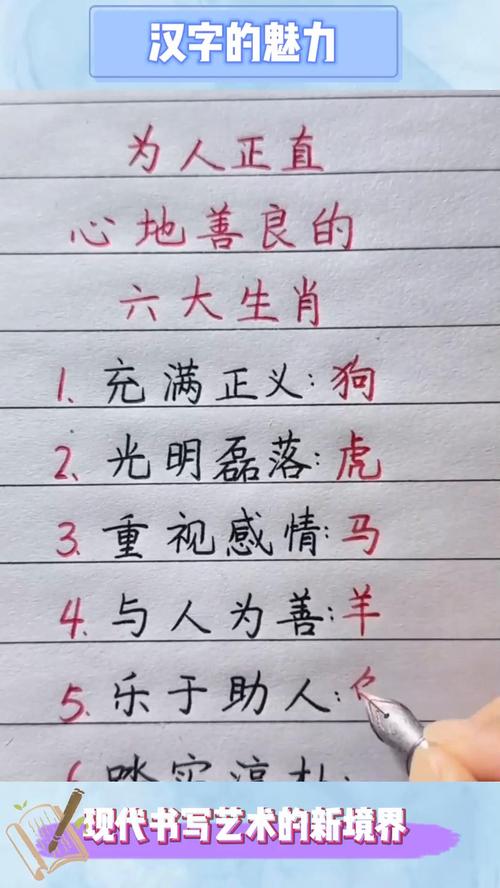 汉字的魅力
为人正直
心地善良的
六大生肖
1. 充满正义:狗
2. 光明磊落:虎
3. 重视感情:马
4. 与人为善:羊
5. 乐于助人:
6. 踏实淳朴:
现代书写艺术的新境界